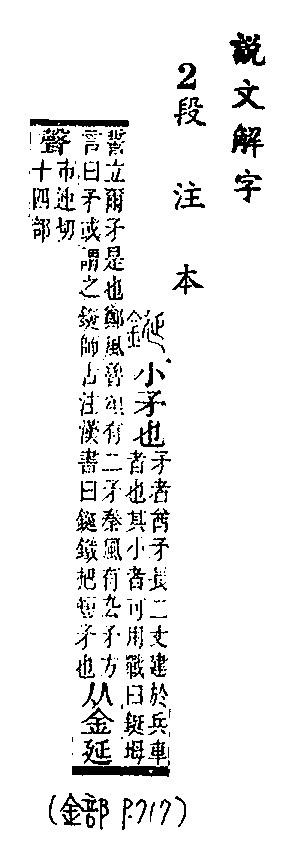 説文解字
2段注本
鋋
小矛也
矛者酋矛長二丈建於兵車
者也其小者可用戰曰鋋坶
誓立爾矛是也鄭風魯頌有二矛秦風有厹矛方
言曰矛或謂之鋋師古注漢書曰鋋鐵把短矛也
从金延
聲
市連切
十四部
(金部 P.717)